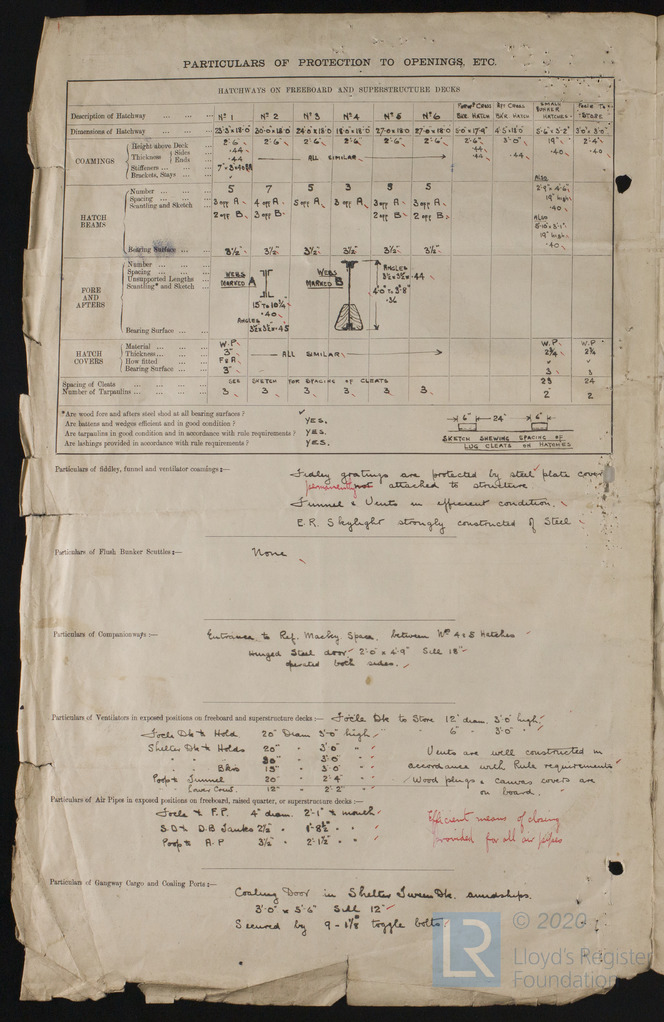 PARTICULARS OF PROTECTION TO OPENINGS, ETC.
HATCHWAYS ON FREEBOARD AND SUPERSTRUCTURE DECKS
Description of Hatchway ... ... ... Nº 1 Nº 2 Nº 3 Nº 4 Nº 5 Nº 6 CROSS BKR HATCH AFT CROSS BKR HATCH SMALL BUNKER HATCHES STORE
Dimensions of Hatchway ... ... ... 23'.3"x18'.0" 30'.0"x18'.0" 24'.0"x18'.0" 18'.0"x18'.0" 27'.0"x18'.0" 27'.0"x18'.0" 5'.0"x17'.9" 4'.5"x18'.0" 5'.6"x3'.2" 3'.0"x3'.0"
COAMINGS
Height above Deck ... 2'.6" 2'.6" 2'.6" 2'.6" 2'.6" 2'.6" 2'.6" 3'.0" 19" 2'.4"
Thickness Sides ... .44 ALL SIMILAR .44 .44 .40 .40
Ends ... .44 .44
Stiffeners ... ... ...
Brackets, Stays ... ...
HATCH BEAMS
Number ... ... ... 5 7 5 3 5 5
Spacing ... ... ...
Scantling and Sketch 3 off A 4 off A 5 off A 3 off A 3 off A 3 off A
2 off B 3 off B 2 off B 2 off B
ALSO
2'.9" x 4'.6"
19" high
.40
ALSO
5'.10" x 3'.1"
19" high
.40
Bearing Surface ... ... 3½" 3½" 3½" 3½" 3½" 3½"
FORE AND AFTERS
Number ... ... ...
Spacing ... ... ...
Unsupported Lengths
Scantling* and Sketch
Bearing Surface ... ...
WEBS MARKED A
.40
ANGLES
3½x3½x.45
WEBS MARKED B
ANGLES
3½x3½x.44
4'.0" TO 3'.8"
.36
HATCH COVERS
Material ... ... ... W.P. W.P. W.P.
Thickness ... ... ... 3" ALL SIMILAR 2¾ 2¾
How fitted ... ... F&A
Bearing Surface ... ... 3" 3 3
Spacing of Cleats ... ... ... SEE SKETCH FOR SPACING OF CLEATS 23 24
Number of Tarpaulins ... ... ... 3 3 3 3 3 3 2 2
*Are wood fore and afters steel shod at all bearing surfaces? ✓
Are battens and wedges efficient and in good condition? YES.
Are tarpaulins in good condition and in accordance with rule requirements? YES.
Are lashings provided in accordance with rule requirements? YES.
6" 24" 6"
SKETCH SHEWING SPACING OF
LUG CLEATS ON HATCHES
Particulars of fiddley, funnel and ventilator coamings:—
Fidley gratings are protected by steel plate cover
permanently not attached to structure
Funnel & Vents in efficient condition.
E.R. Skylight strongly constructed of Steel
Particulars of Flush Bunker Scuttles:— None
Particulars of Companionways:— Entrance to Ref. Machy Space. between Nos 4 & 5 Hatches
Hinged Steel door 2'.0" x 4'.9" Sill 18"
operated both sides.
Particulars of Ventilators in exposed positions on freeboard and superstructure decks:— Focle Dk to Store 12" diam. 3'.0" high
Focle Dk to Hold 20" Diam 3'.0" high " 6" " 3'.0" "
Shelter Dk to Holds 20" " 3'.0" " "
" " 30" " 3'.0" " "
" Bkrs 15" " 3'.0" " "
Poop to Tunnel 20" " 2'.4" " "
" 12" " 2'.2" "
Vents are well constructed in
accordance with Rule requirements
Wood plugs & canvas covers are
on board.
Particulars of Air Pipes in exposed positions on freeboard, raised quarter, or superstructure decks:—
Focle to F.P. 4" diam. 2'.1" to mouth
S.D. to D.B Tanks 2½" " 1'.8½" " "
Poop to A.P 3½" " 2'.1½" " "
Efficient means of closing
provided for all air pipes
Particulars of Gangway Cargo and Coaling Ports:—
Coaling Door in Shelter Tween Dk. amidships.
3'.0" x 5'.6" Sill 12"
Secured by 9 - 1⅛" toggle bolts
LR © 2020
Lloyd's Register
Foundation